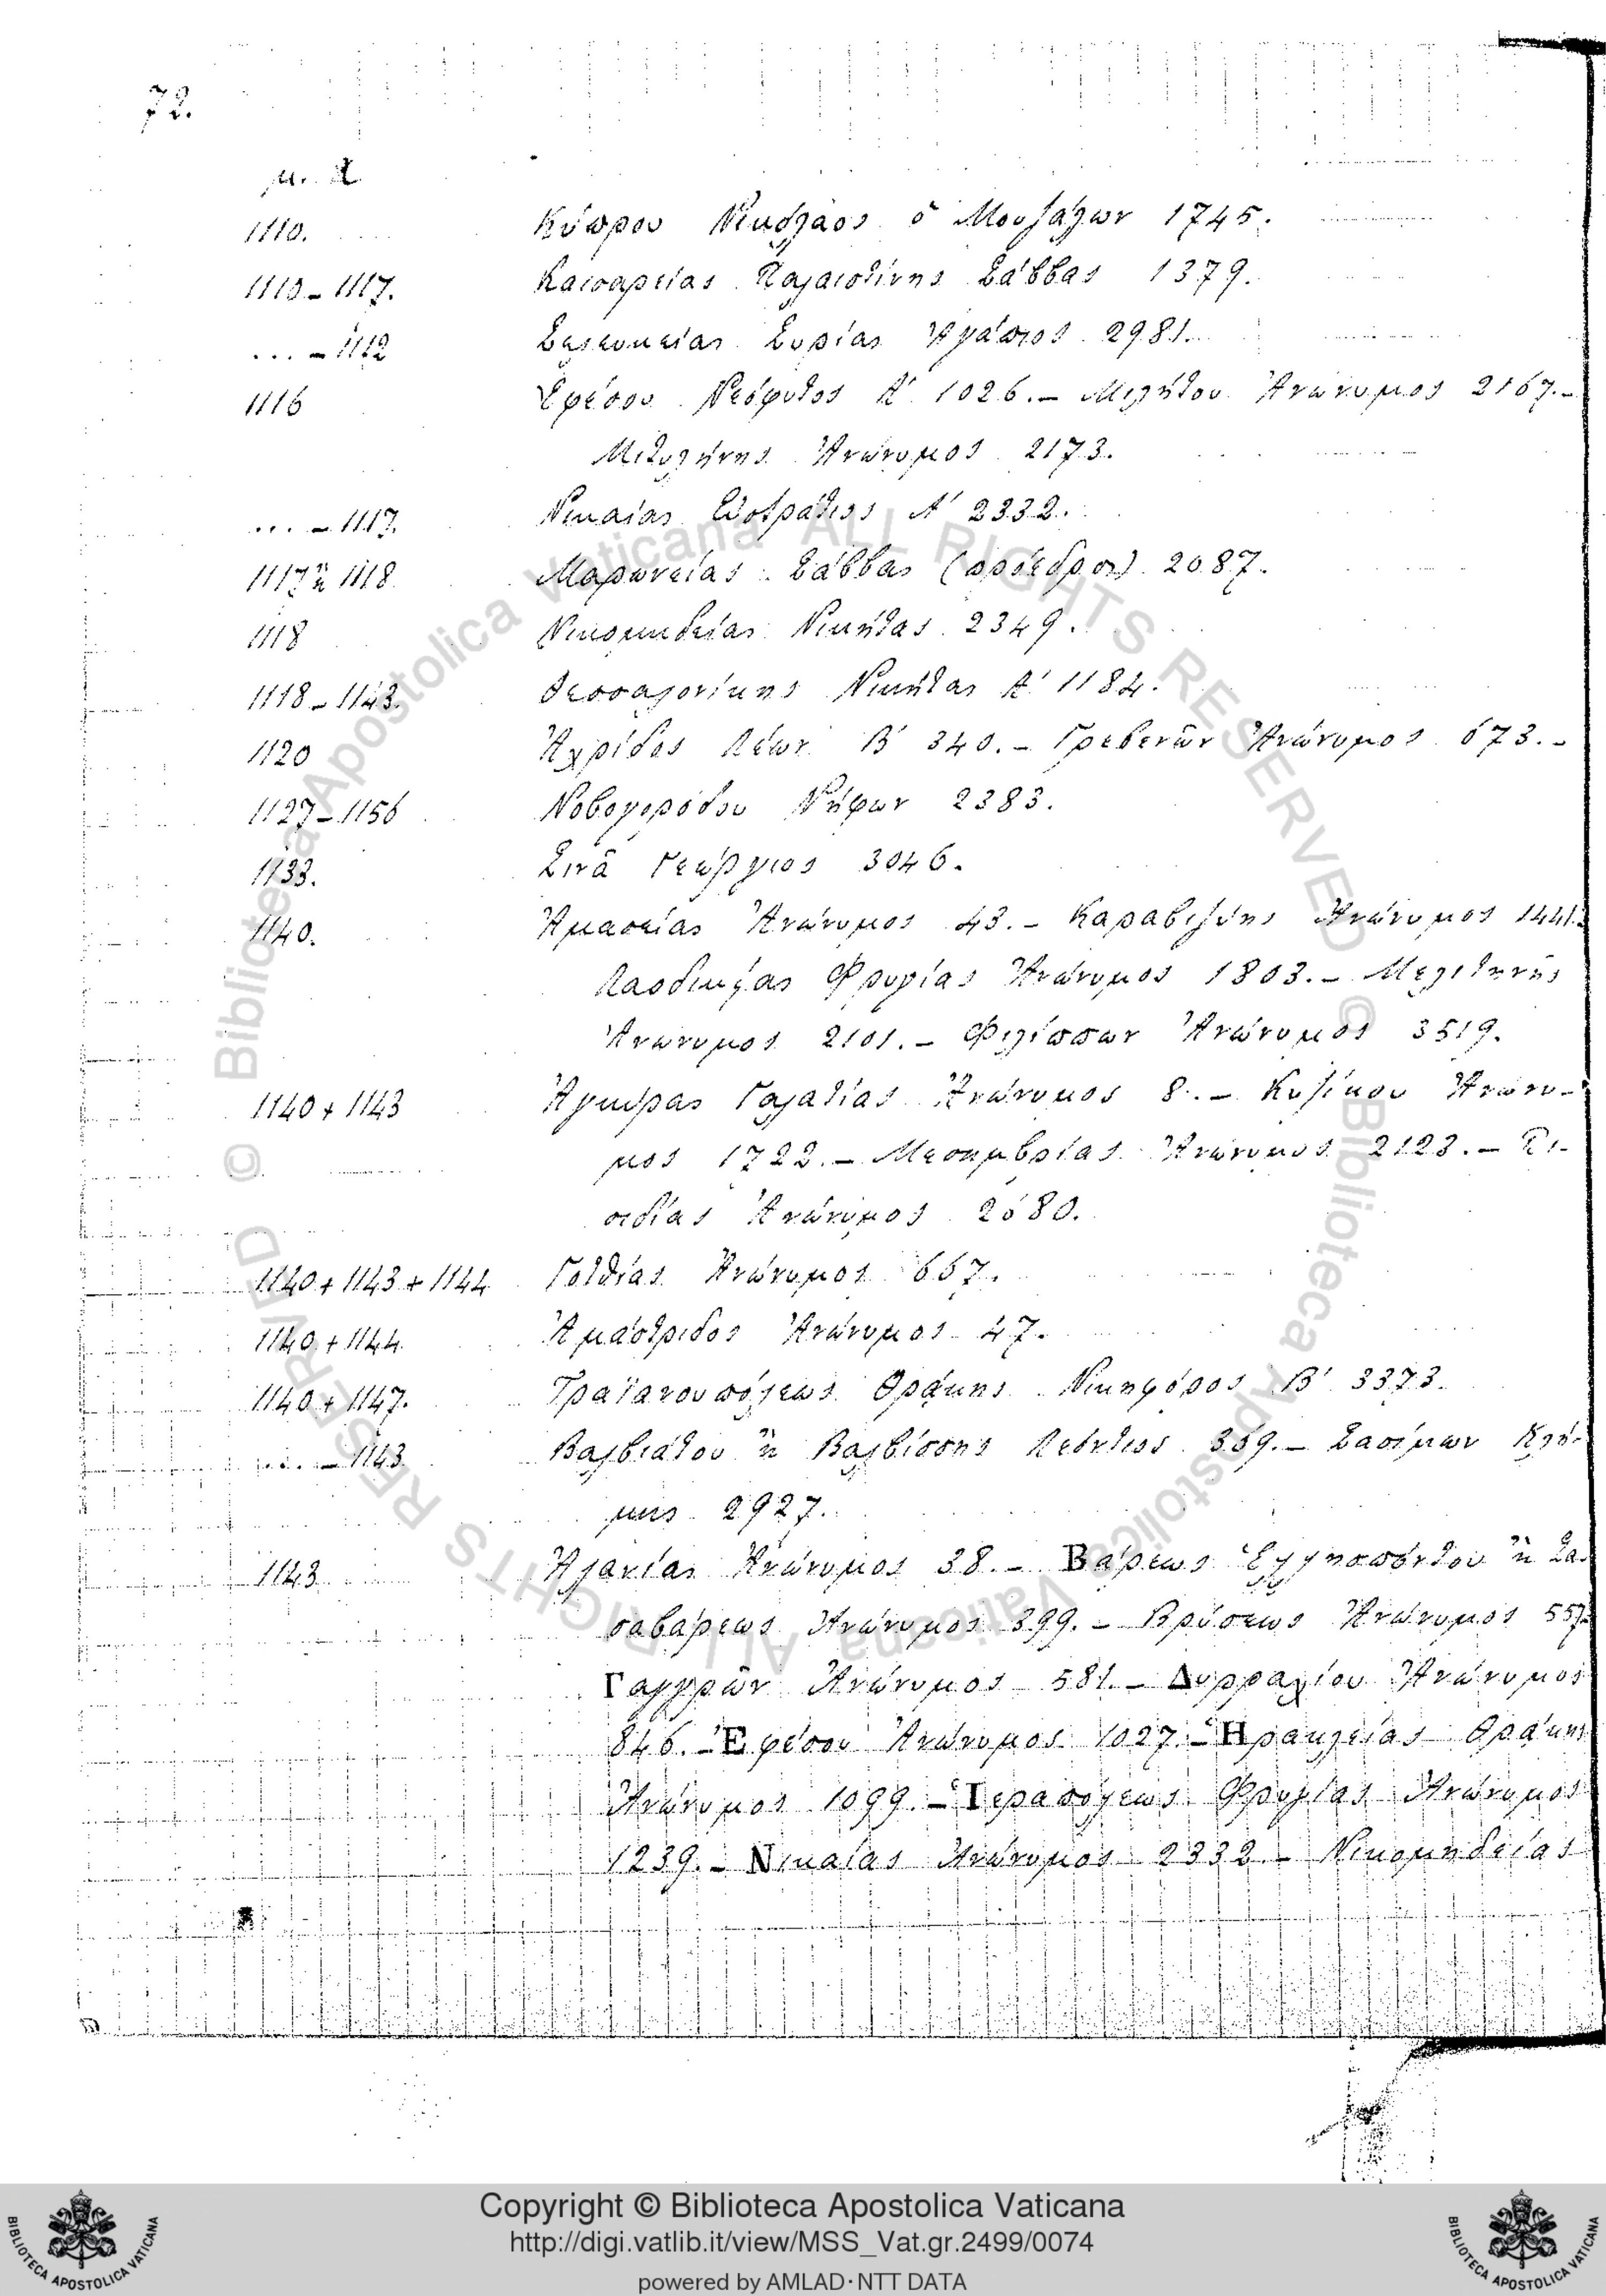 72.
μ. Χ.
1110. Κύπρου Νικόλαος ὁ Μουζάλων 1745.
1113-1117. Καισαρείας Παλαιστίνης Σάββας 1379.
... - 1112 Σελευκείας Συρίας Ἀγάπιος 2981.
1116 Ἐφέσου Νεόφυτος Α' 1026. - Μιλήτου Ἀνώνυμος 2167. -
Μιτυλήνης Ἀνώνυμος 2173.
... - 1117. Νικαίας Εὐστράτιος Α' 2332.
1117 ἢ 1118 Μαρωνείας Σάββας (πρόεδρος) 2087.
1118 Νικομηδείας Νικήτας 2349.
1118-1143. Θεσσαλονίκης Νικήτας Α' 1184.
1120 Ἀχρίδος Λέων Β' 340. - Γρεβενῶν Ἀνώνυμος 673. -
1127-1156 Νοβογορόδου Νήφων 2383.
1133. Σινᾶ Γεώργιος 3046.
1140. Ἀμασείας Ἀνώνυμος 43. - Καραβιζύης Ἀνώνυμος 1441.
Λαοδικείας Φρυγίας Ἀνώνυμος 1803. - Μελιτηνῆς
Ἀνώνυμος 2101. - Φιλίππων Ἀνώνυμος 3519.
1140 + 1143 Ἀγκύρας Γαλατίας Ἀνώνυμος 8. - Κυζίκου Ἀνώνυ-
μος 1722. - Μεσημβρίας Ἀνώνυμος 2123. - Πι-
σιδίας Ἀνώνυμος 2680.
1140 + 1143 + 1144 Γοτθίας Ἀνώνυμος 657.
1140 + 1144 Ἀμάστριδος Ἀνώνυμος 47.
1140 + 1147. Τραϊανουπόλεως Θράκης Νικηφόρος Β' 3373.
... - 1143 Βαλβιάτου ἢ Βαλβίσσης Λεόντιος 359. - Σασίμων Κλή-
μης 2927.
1143 Ἀλανίας Ἀνώνυμος 38. - Βάρεως Ἑλλησπόντου ἢ Σα-
σαβάρεως Ἀνώνυμος 399. - Βρύσεως Ἀνώνυμος 557
Γαγγρῶν Ἀνώνυμος 581. - Δυρραχίου Ἀνώνυμος
846. - Ἐφέσου Ἀνώνυμος 1027. - Ἡρακλείας Θράκης
Ἀνώνυμος 1099. - Ἱεραπόλεως Φρυγίας Ἀνώνυμος
1239. - Νικαίας Ἀνώνυμος 2332 - Νικομηδείας
© Biblioteca Apostolica Vaticana ALL RIGHTS RESERVED
© Biblioteca Apostolica Vaticana ALL RIGHTS RESERVED
Copyright © Biblioteca Apostolica Vaticana
http://digi.vatlib.it/view/MSS_Vat.gr.2499/0074
powered by AMLAD·NTT DATA
BIBLIOTECA APOSTOLICA VATICANA
BIBLIOTECA APOSTOLICA VATICANA